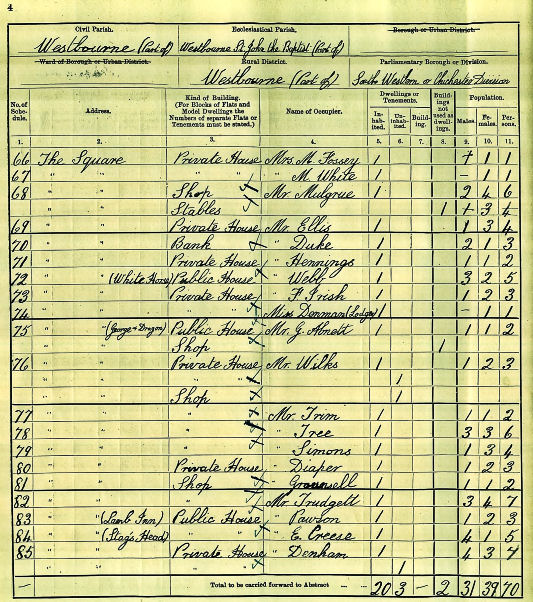 4
Civil Parish. Ecclesiastical Parish. Borough or Urban District.
Westbourne (Part of) Westbourne St. John the Baptist (Part of)
Ward of Borough or Urban District. Rural District. Parliamentary Borough or Division.
Westbourne (Part of) South Western or Chichester Division
No. of Schedule. Address. Kind of Building. (For Blocks of Flats and Model Dwellings the Numbers of separate Flats or Tenements must be stated.) Name of Occupier. Dwellings or Tenements. Inhabited. Uninhabited. Building. Buildings not used as dwellings. Population. Males. Females. Persons.
1. 2. 3. 4. 5. 6. 7. 8. 9. 10. 11.
66 The Square Private House Mrs. M. Fossey 1 1 1
67 " " " " " M. White 1 - 1 1
68 " " Shop Mr. Mulgrue 1 2 4 6
" " Stables 1 3
69 " " Private House Mr. Ellis 1 1 3 4
70 " " Bank " Duke 1 2 1 3
71 " " Private House " Hennings 1 1 1 2
72 " (White Horse) Public House " Webb 1 3 2 5
73 " " Private House " F. Irish 1 1 2 3
74 " " " " Miss Denman (Lodger) 1 - 1 1
75 " (George & Dragon) Public House Mr. G. Abnett 1 1 1 2
" " Shop 1
76 " " Private House Mr. Wilks 1 1 2 3
" " " " 1
" " Shop 1
77 " " " Mr. Trim 1 1 1 2
78 " " " " Tree 1 3 3 6
79 " " " " Simons 1 1 3 4
80 " " Private House " Diaper 1 1 2 3
81 " " Shop " 1 1 1 2
82 " " " Mr. Trudgett 1 3 4 7
83 " (Lamb Inn) Public House " Pawson 1 1 2 3
84 " (Stag's Head) " " " E. Creese 1 4 1 5
85 " " Private House " Denham 1 4 3 7
" " " 1
— Total to be carried forward to Abstract 20 3 - 2 31 39 70